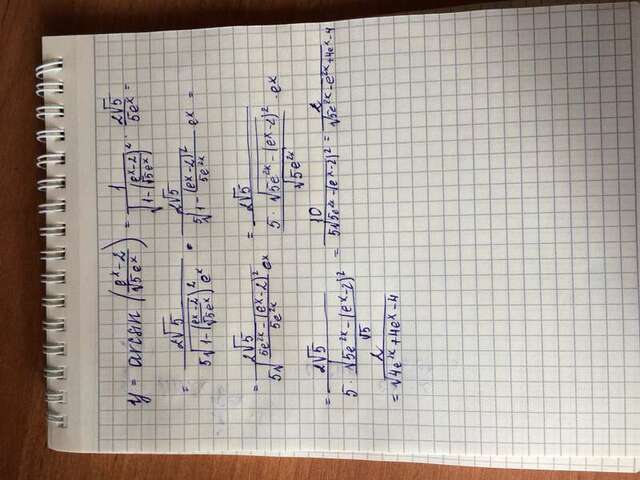 y = arcsin ((e^x-2)/(√5e^x)) = 1/√(1-((e^x-2)/(√5e^x))²) · 2√5/(5e^x) =
= 2√5/(5√(1-((e^x-2)/(√5e^x))²) e^x) = 2√5/(5√(1-(e^x-2)²/(5e^2x)) e^x) =
= 2√5/(5√((5e^2x-(e^x-2)²)/(5e^2x)) e^x) = 2√5/(5·√(5e^2x-(e^x-2)²)/√(5e^2x) · e^x)
= 2√5/(5·√(5e^2x-(e^x-2)²)/√5) = 10/(5√(5e^2x-(e^x-2)²)) = 2/√(5e^2x-e^2x+4e^x-4)
= 2/√(4e^2x+4e^x-4)